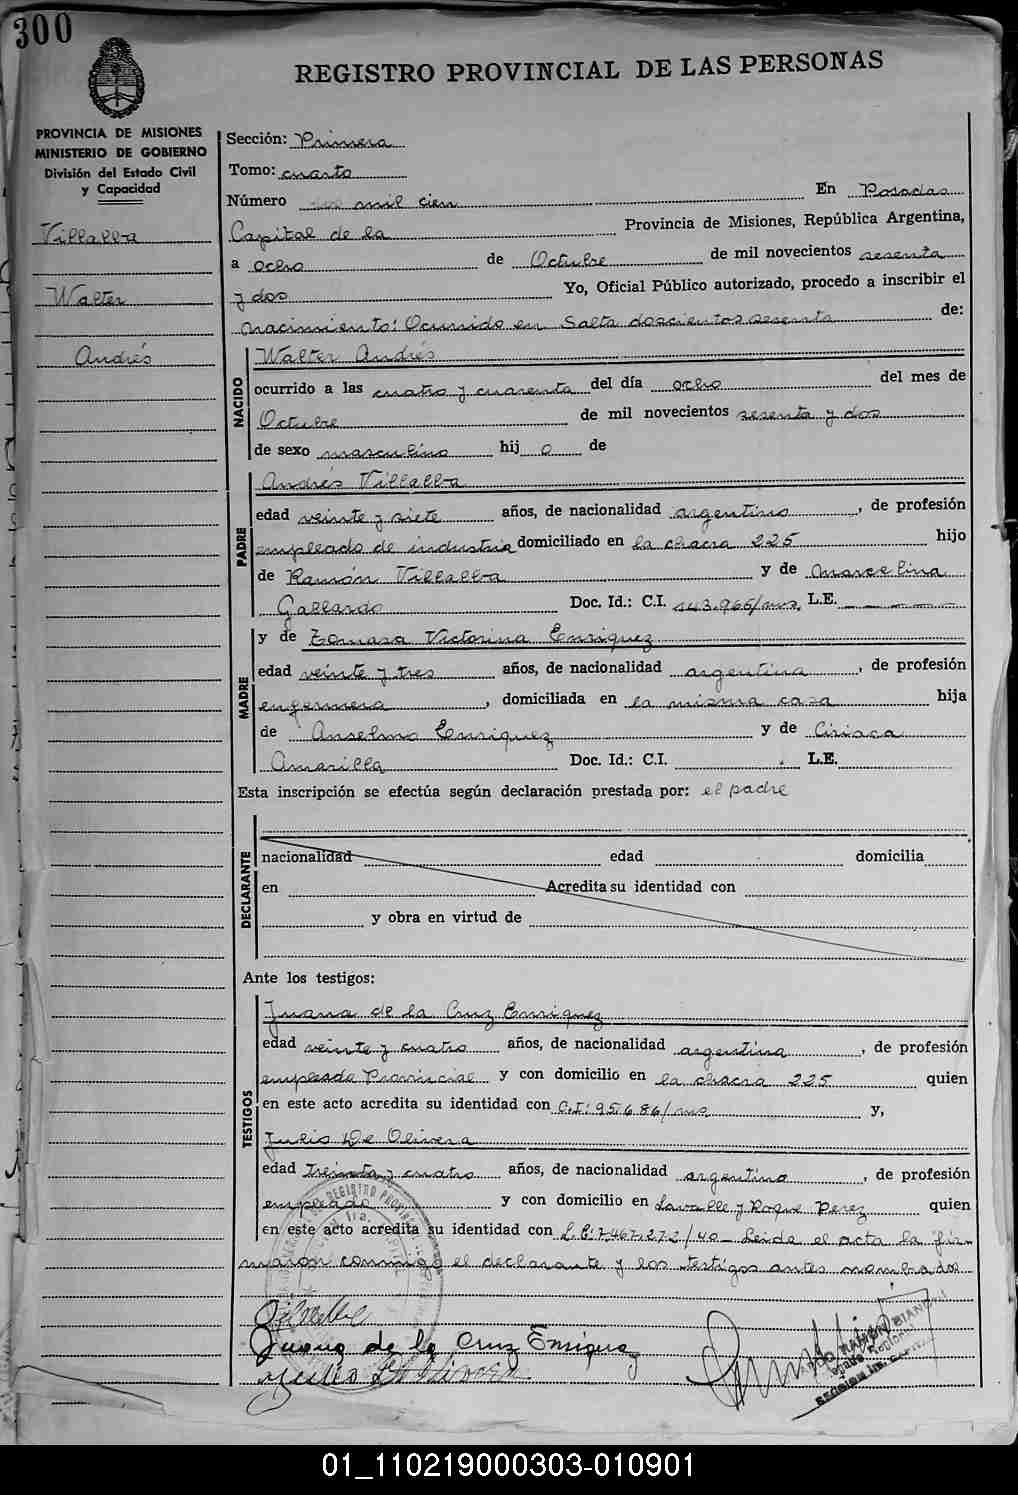 300
REGISTRO PROVINCIAL DE LAS PERSONAS
PROVINCIA DE MISIONES
MINISTERIO DE GOBIERNO
División del Estado Civil
y Capacidad
Villalba
Walter
Andrés
Sección: Primera
Tomo: cuarto
Número dos mil cien En Posadas
Capital de la Provincia de Misiones, República Argentina,
a ocho de Octubre de mil novecientos sesenta
y dos Yo, Oficial Público autorizado, procedo a inscribir el
nacimiento: Ocurrido en Salta doscientos sesenta de:
NACIDO
Walter Andrés
ocurrido a las cuatro y cuarenta del día ocho del mes de
Octubre de mil novecientos sesenta y dos
de sexo masculino hij o de
PADRE
Andrés Villalba
edad veinte y siete años, de nacionalidad argentino, de profesión
empleado de industria domiciliado en la chacra 225 hijo
de Ramón Villalba y de Marcelina
Gallardo Doc. Id.: C.I. 143.966/mns. L.E.
MADRE
y de Tomasa Victorina Enriquez
edad veinte y tres años, de nacionalidad argentina, de profesión
enfermera, domiciliada en la misma casa hija
de Anselmo Enriquez y de Ciriaca
Amarilla Doc. Id.: C.I. L.E.
Esta inscripción se efectúa según declaración prestada por: el padre
DECLARANTE
nacionalidad edad domicilia
en Acredita su identidad con
y obra en virtud de
Ante los testigos:
TESTIGOS
Juana de la Cruz Enriquez
edad veinte y cuatro años, de nacionalidad argentina, de profesión
empleada Provincial y con domicilio en la chacra 225 quien
en este acto acredita su identidad con C.I: 95.686/mns y,
Julio De Olivera
edad treinta y cuatro años, de nacionalidad argentino, de profesión
empleado y con domicilio en Lavalle y Roque Perez quien
en este acto acredita su identidad con L.E: 7.467.272/40- Leida el acta la fir-
maron conmigo el declarante y los testigos antes nombrados
Juana de la Cruz Enriquez
Julio De Olivera
REGISTRO PROVINCIAL
RAMON BIANCHI
01_110219000303-010901